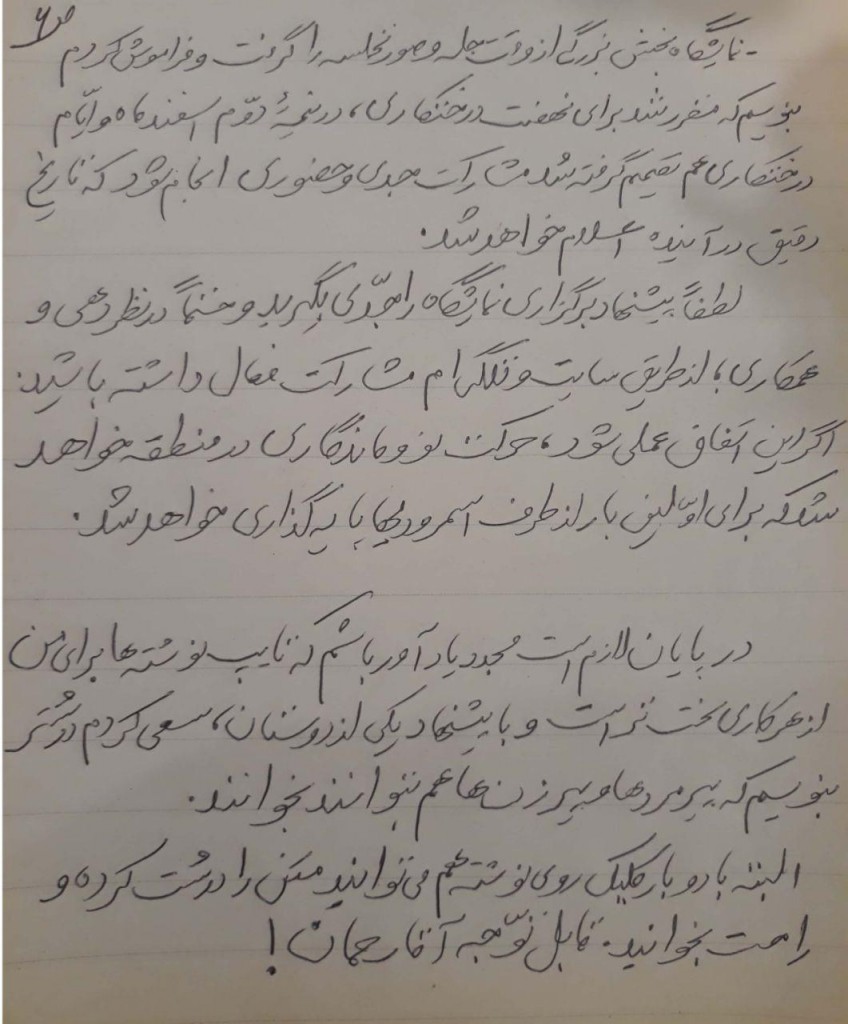 ص۶
- نمایشگاه بخش بزرگی از وقت جلسه و صورتجلسه را گرفت و فراموش کردم
بنویسم که مقرر شد برای نهضت درختکاری، در نیمهٔ دوّم اسفندماه و ایّام
درختکاری هم تصمیم گرفته شد مشارکت جدی و حضوری انجام شود که تاریخ
دقیق در آینده اعلام خواهد شد.
لطفاً پیشنهاد برگزاری نمایشگاه را جدّی بگیرید و حتماً در نظردهی و
همکاری، از طریق سایت و تلگرام مشارکت فعال داشته باشید.
اگر این اتفاق عملی شود، حرکت نو و ماندگاری در منطقه خواهد
شد که برای اوّلین بار از طرف اسمرودیها پایه گذاری خواهد شد.
در پایان لازم است مجدد یادآور باشم که تایپ نوشته ها برای من
از هر کاری سخت تر است و با پیشنهاد یکی از دوستان، سعی کردم دُرُشتر
بنویسم که پیرمردها و پیرزن ها هم بتوانند بخوانند.
البته با دو بار کلیک روی نوشته هم می توانید متن را درشت کرده و
راحت بخوانید. قابل توّجه آقا رحمان!